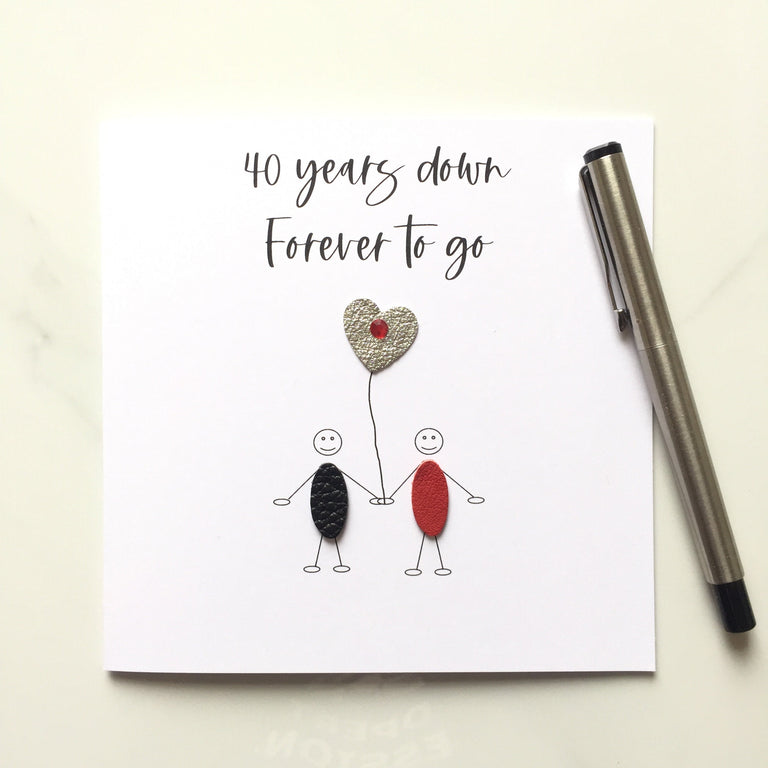 40 years down
Forever to go